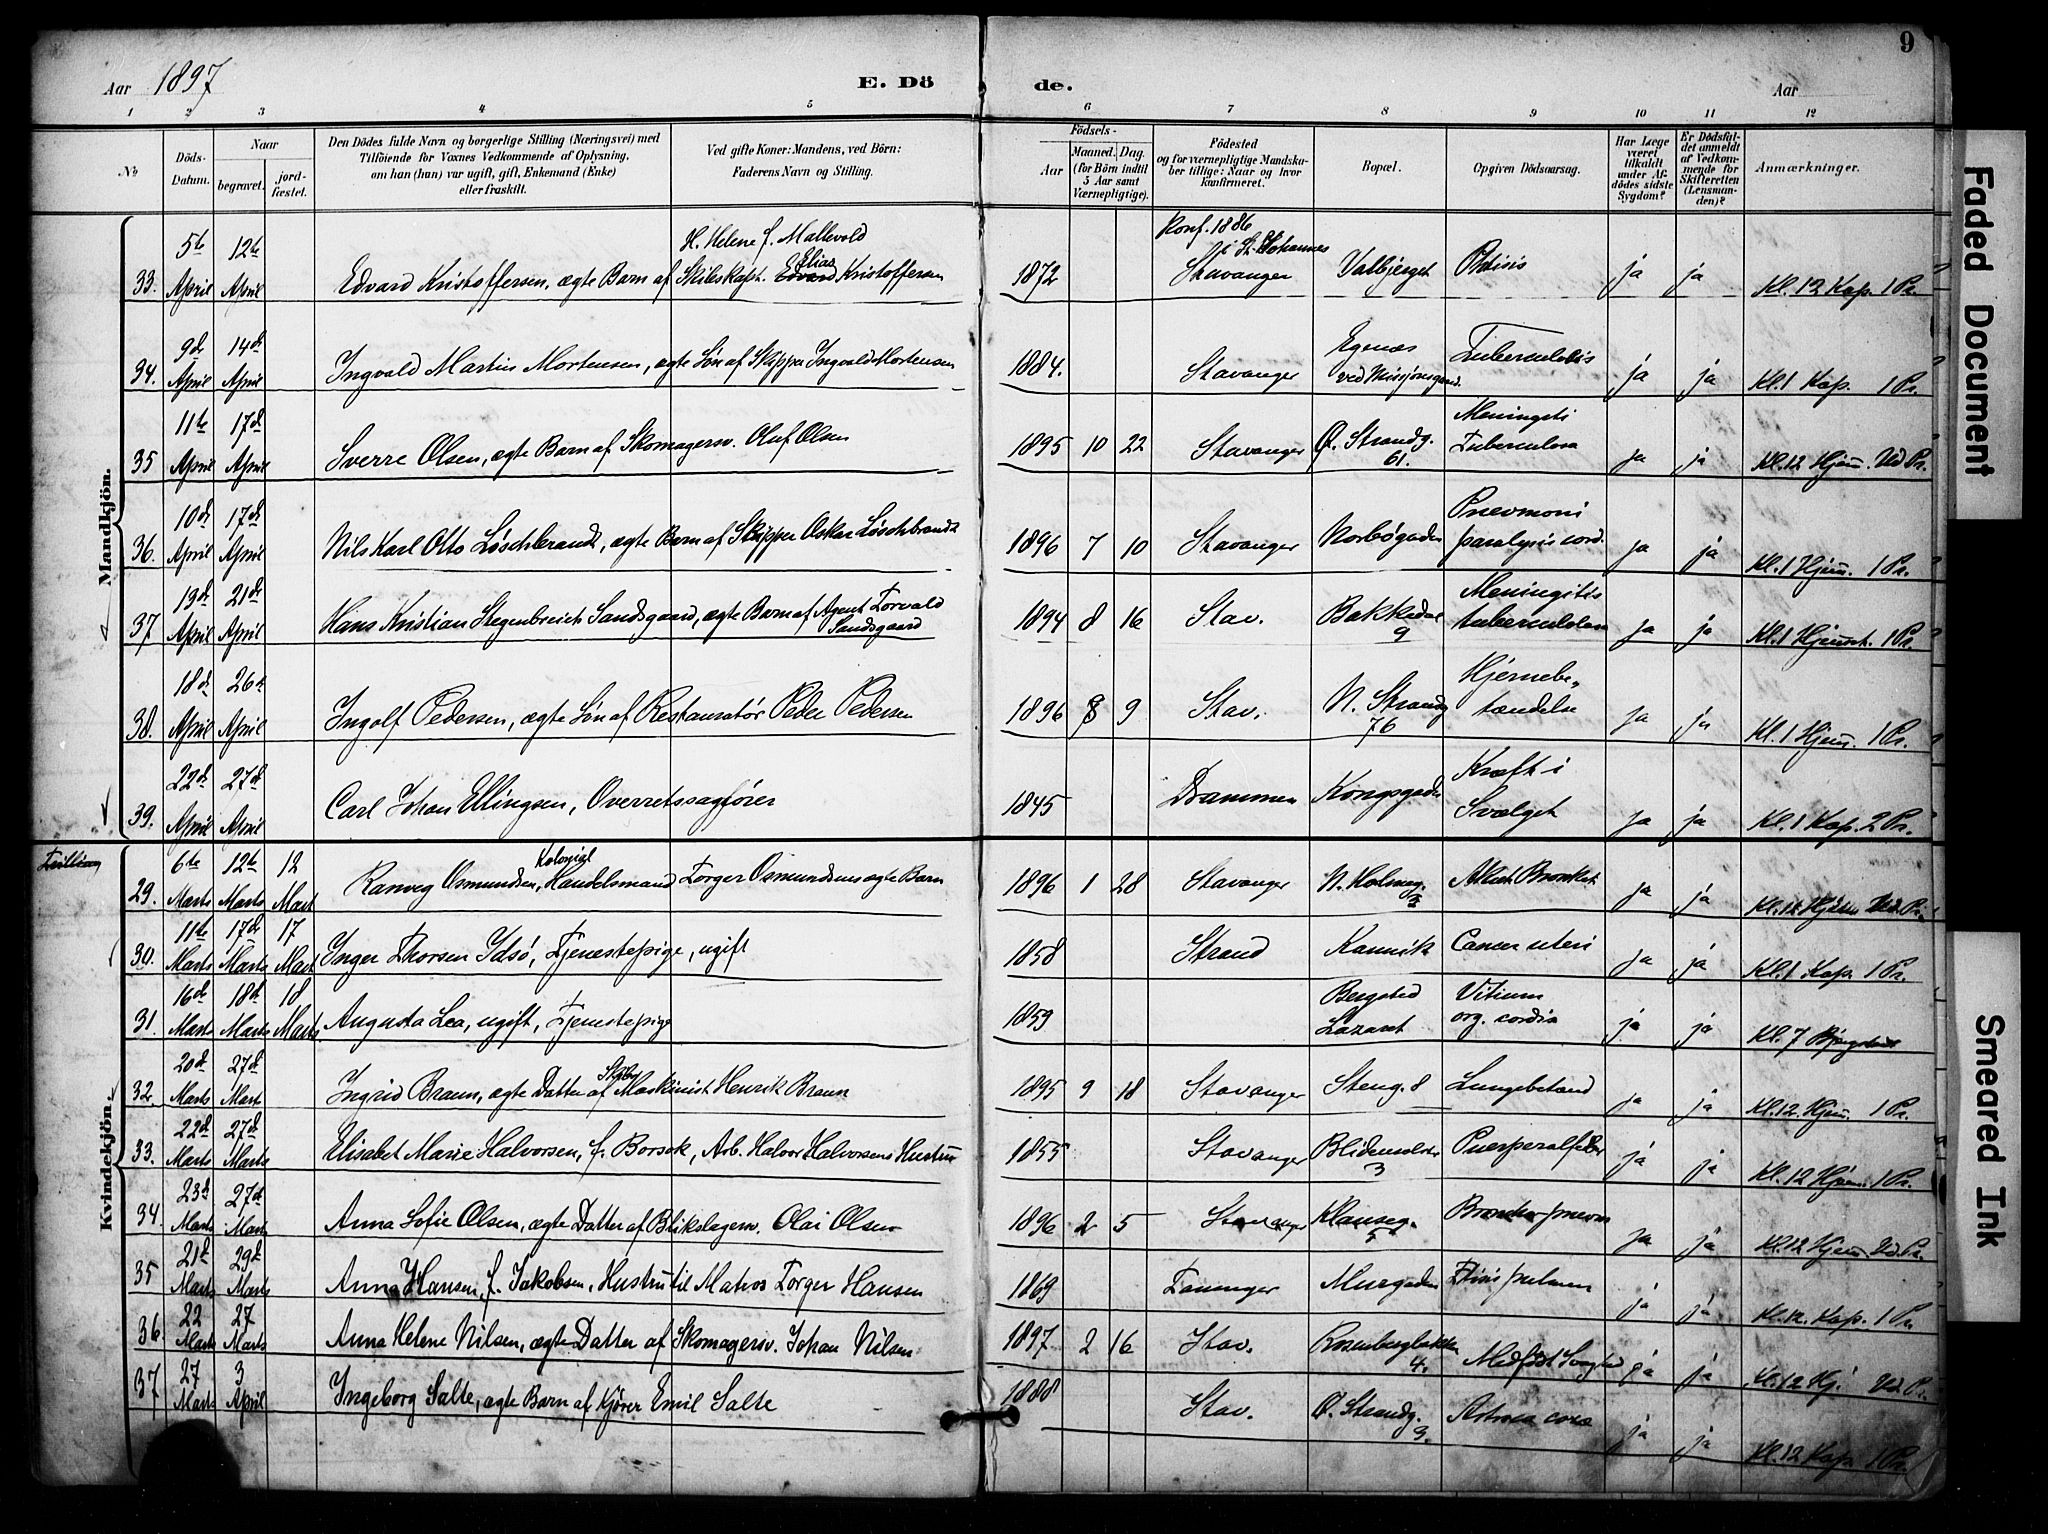 9
Aar 1897
E. Dö de.
Aar
1 2 3 4 5 6 7 8 9 10 11 12
No
Döds-Datum.
Naar
begravet.
jord-fæstet.
Den Dödes fulde Navn og borgerlige Stilling (Næringsvei) med
Tilföiende for Voxnes Vedkommende af Oplysning,
om han (hun) var ugift, gift, Enkemand (Enke)
eller fraskilt.
Ved gifte Koner: Mandens, ved Börn:
Faderens Navn og Stilling.
Födsels-
Aar
Maaned. Dag.
(for Börn indtil
5 Aar samt
Værnepligtige).
Födested
og for værnepligtige Mandska-
ber tillige: Naar og hvor
konfirmeret.
Bopæl.
Opgiven Dödsaarsag.
Har Læge
været
tilkaldt
under Af-
dödes sidste
Sygdom?
Er Dödsfal-
det anmeldt
af Vedkom-
mende for
Skifteretten
(Lensman-
den)?
Anmærkninger.
Mandkjön.
H. Helene f. Mallevold
Konf. 1886
i St. Johannes
33. 5te April 12te April Edvard Kristoffersen, ægte Barn af Skibskapt. Edvard Elias Kristoffersen 1872 Stavanger Valbjerget Phtisis ja ja Kl. 12 Kap. 1 Pr.
34. 9de April 14de April Ingvald Martin Mortensen, ægte Søn af Skipper Ingvald Mortensen 1884. Stavanger Egenæs ved Missjonsgaard. Tuberculosis ja ja Kl. 1 Kap. 1 Pr.
35 11te April 17de April Sverre Olsen, ægte Barn af Skomagersv. Oluf Olsen 1895 10 22 Stavanger Ø. Strandg. 61. Meningeti Tuberculosa ja ja Kl. 12 Hjem. Ud. Pr.
36. 10de April 17de April Nils Karl Otto Löschbrandt, ægte Barn af Skipper Oskar Löschbrandt 1896 7 10 Stavanger Norbøgaden Pnevmoni paralysis cord. ja ja Kl. 1 Hjem. 1 Pr.
37 19de April 21de April Hans Kristian Stegenbreich Sandsgaard, ægte Barn af Agent Torvald Sandsgaard 1894 8 16 Stav. Bakkedal 9 Meningitis tuberculosa ja ja Kl. 1 Hjem. 1 Pr.
38. 18de April 26de April Ingolf Pedersen, ægte Søn af Restauratør Peder Pedersen 1896 8 9 Stav. N. Strandg 76 Hjernebe-tændelse ja ja Kl. 1 Hjem. 1 Pr.
39. 22de April 27de April Carl Johan Ellingsen, Overretssagfører 1845 Drammen Kongsgaden Kræft i Svælget ja ja Kl. 1 Kap. 2 Pr.
Kvindekjön.
Tvilling
29. 6te Marts 12te Marts 12 Mart Ranveg Osmundsen, Kolonial Handelsmand Torger Osmundsens ægte Barn 1896 1 28 Stavanger N. Holmeg. Akut Bronket ja ja Kl. 12 Hjem Ud. Pr.
30. 11te Marts 17de Marts 17 Mart Inger Thorsen Idsø, Tjenestepige, ugift 1858 Strand Kannik Cancer uteri ja ja Kl. 1 Kap. 1 Pr.
31. 16de Marts 18de Marts 18 Marts Augusta Lea, ugift, Tjenestepige 1859 Bergsted Lazaret Vitium org. cordis ja ja Kl. 7
32. 20de Marts 27de Marts Ingrid Braun, ægte Datter af Maskinist Henrik Braun 1895 9 18 Stavanger Steng. 8 Lungebetænd ja ja Kl. 12. Hjem. 1 Pr.
33. 22de Marts 27de Marts Elisabet Marie Halvorsen, f. Borsok, Arb. Halvor Halvorsens Hustru 1855 Stavanger 3 Puerperalfeber ja ja Kl. 12 Hjem. 1 Pr.
34. 23de Marts 27de Marts Anna Sofie Olsen, ægte Datter af Blikslagersv. Olai Olsen 1896 2 5 Stavanger Klauseg. 5 ja ja Kl. 12 Hjem. Ud. Pr.
35 21de Marts 29de Marts Anna Hansen, f. Jakobsen, Hustru til Matros Torger Hansen 1869 Tananger Murgaden Ftisis pulmon ja ja Kl. 12. Kap. 1 Pr.
36. 22 Marts 27 Marts Anna Helene Nilsen, ægte Datter af Skomagersv. Johan Nilsen 1897 2 16 Stav. Rosenbergbakken 4. Medfødt Svaghed ja ja Kl. 12 Hj. Ud. Pr.
37 27 Marts 3 April Ingeborg Salte, ægte Barn af Kjører Emil Salte 1888 Stav. Ø. Strandg. 9. ja ja Kl. 12 Kap. 1 Pr.
Faded Document
Smeared Ink